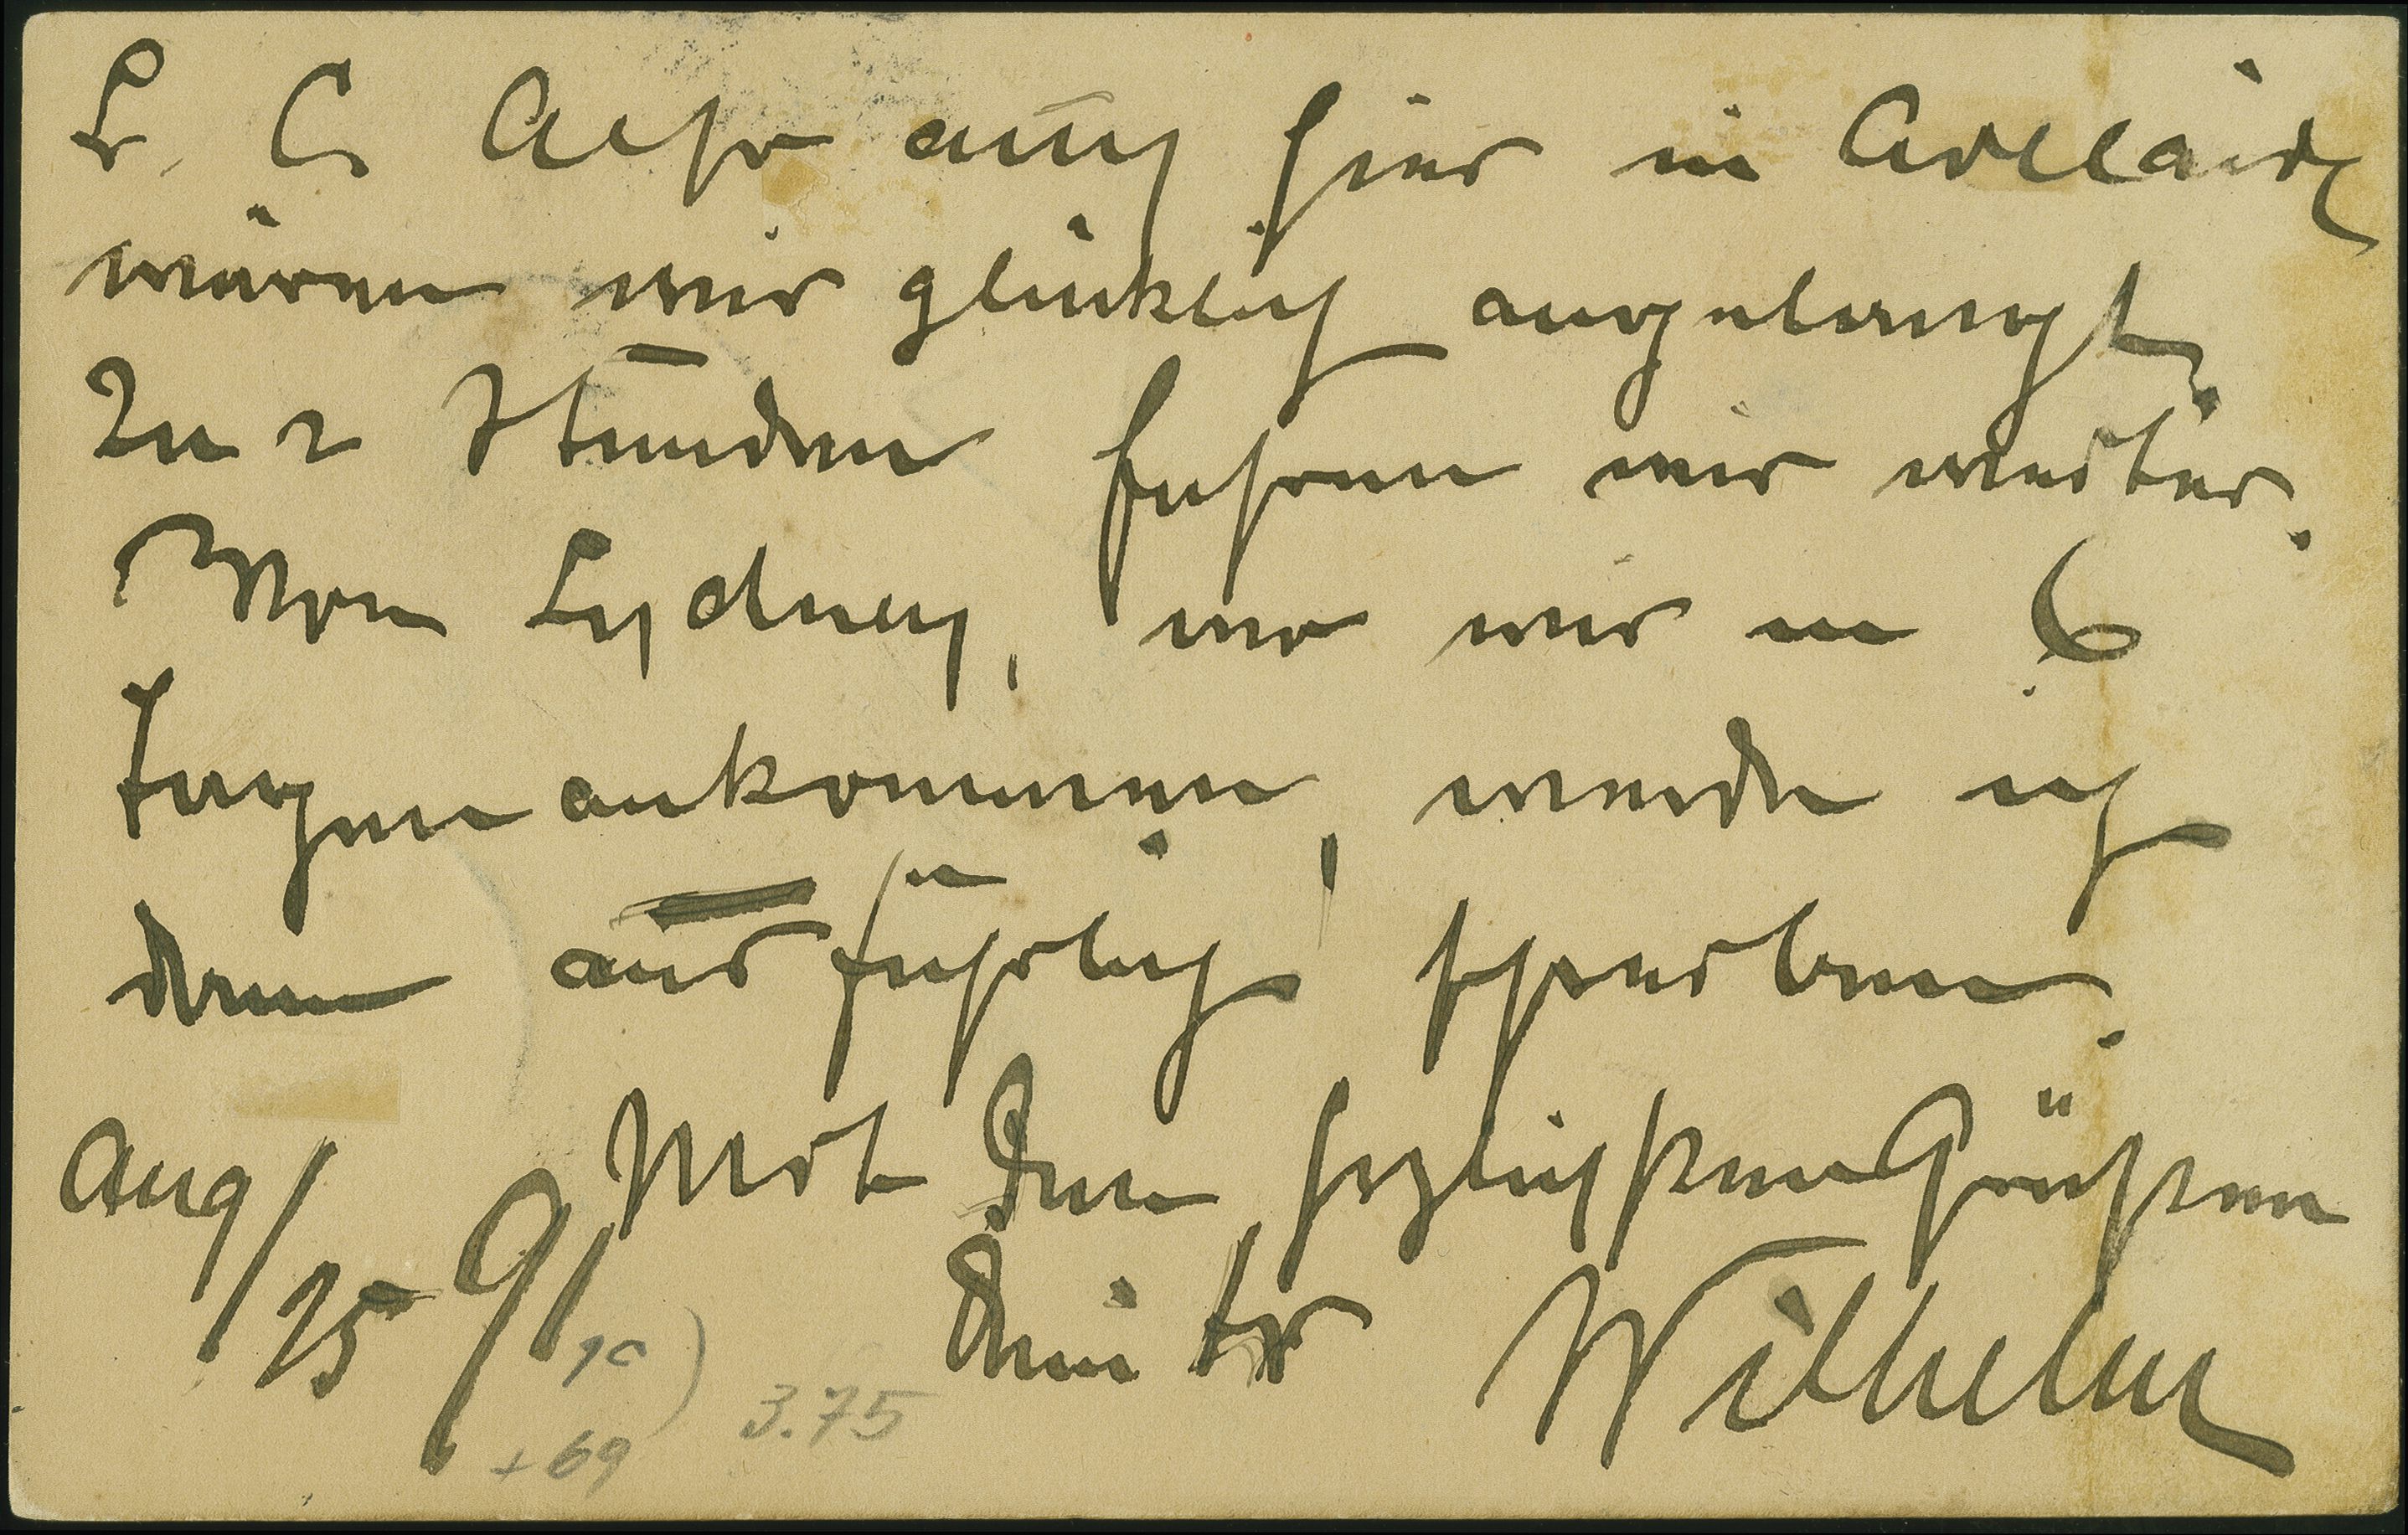 L. C. Also auch hier in Adelaide
wären wir glücklich angelangt,
In 2 Stunden fahren wir weiter.
Von Sydney, wo wir in 6
Tagen ankommen, werde ich
dann ausführlich schreiben.
Mit den herzlichsten Grüßen
Aug/25 91
Dein tr Wilhelm
10)
+69
3.75